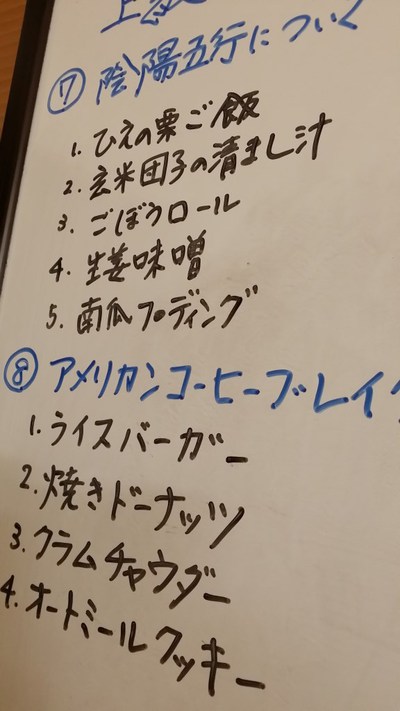 上級
⑦ 陰陽五行について
1. ひえの栗ご飯
2. 玄米団子の清まし汁
3. ごぼうロール
4. 生姜味噌
5. 南瓜プディング
⑧ アメリカンコーヒーブレイク
1. ライスバーガー
2. 焼きドーナッツ
3. クラムチャウダー
4. オートミールクッキー